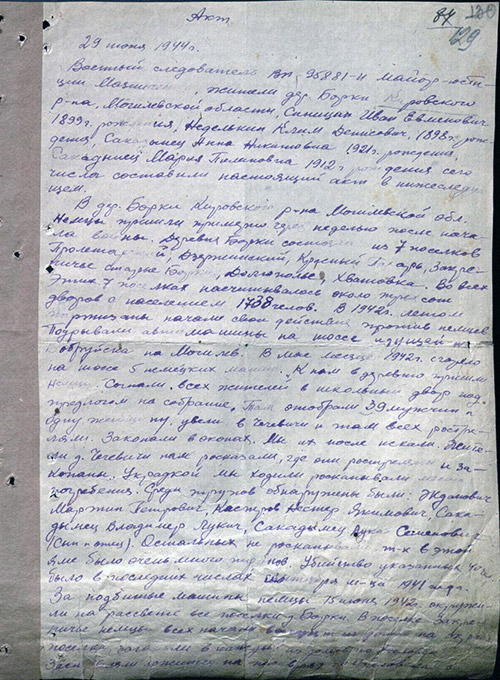 Акт
84
129
29 июня 1944г.
Военный следователь ВП 95881-И майор юсти-
ции, жители дер. Борки Кировского
р-на Могилевской области, Синицын Иван
1899г. рождения, Неделькин Клим Денисович, 1893г. рож-
дения, Сакадынец Анна Никитовна 1921г. рождения,
Сакадынец Мария 1912г. рождения сего
числа составили настоящий акт в нижеследую-
щем.
В дер. Борки Кировского р-на Могилевской обл.
Немцы пришли примерно через неделю после нача-
ла войны. Деревня Борки состояла из 7 поселков
Пролетарский, Дзержинский, Красный Пахарь, Закре-
пичье старые Борки, Долгополье, Хватовка. Во всех
этих 7 поселках насчитывалось около трех сот
дворов с населением 1738 челов. В 1942г. летом
партизаны начали свои действия против немцев
Подрывали автомашины на шоссе идущей из
Бобруйска на Могилев. В мае месяце 1942г. сгорело
на шоссе 5 немецких машин. К нам в деревню пришли
немцы. Согнали всех жителей в школьный двор под
предлогом на собрание. Там отобрали 39 мужчин и
одну женщину, увели в Чечевичи и там всех расстре-
ляли. Закопали в окопах. Мы их после искали. Жите-
ли д. Чечевичи нам рассказали, где они расстреляны и за-
копаны. Украдкой мы ходили раскапывали места
погребения. Среди трупов обнаружены были: Жданович
Мартин Петрович, Касперов Нестер Якимович, Сака-
дынец Владимер Лукич, Сакадынец Лукаш Семенович
(сын и отец). Остальных не раскапывали т-к в этой
яме было очень много трупов. Убийство указанных 40 чел.
было в последних числах м-ца 1941 года.
За подбитые машины немцы 15 июня 1942г. окружи-
ли на рассвете все поселки д. Борки. В поселке Закре-
пичье немцы всех начали
поселка